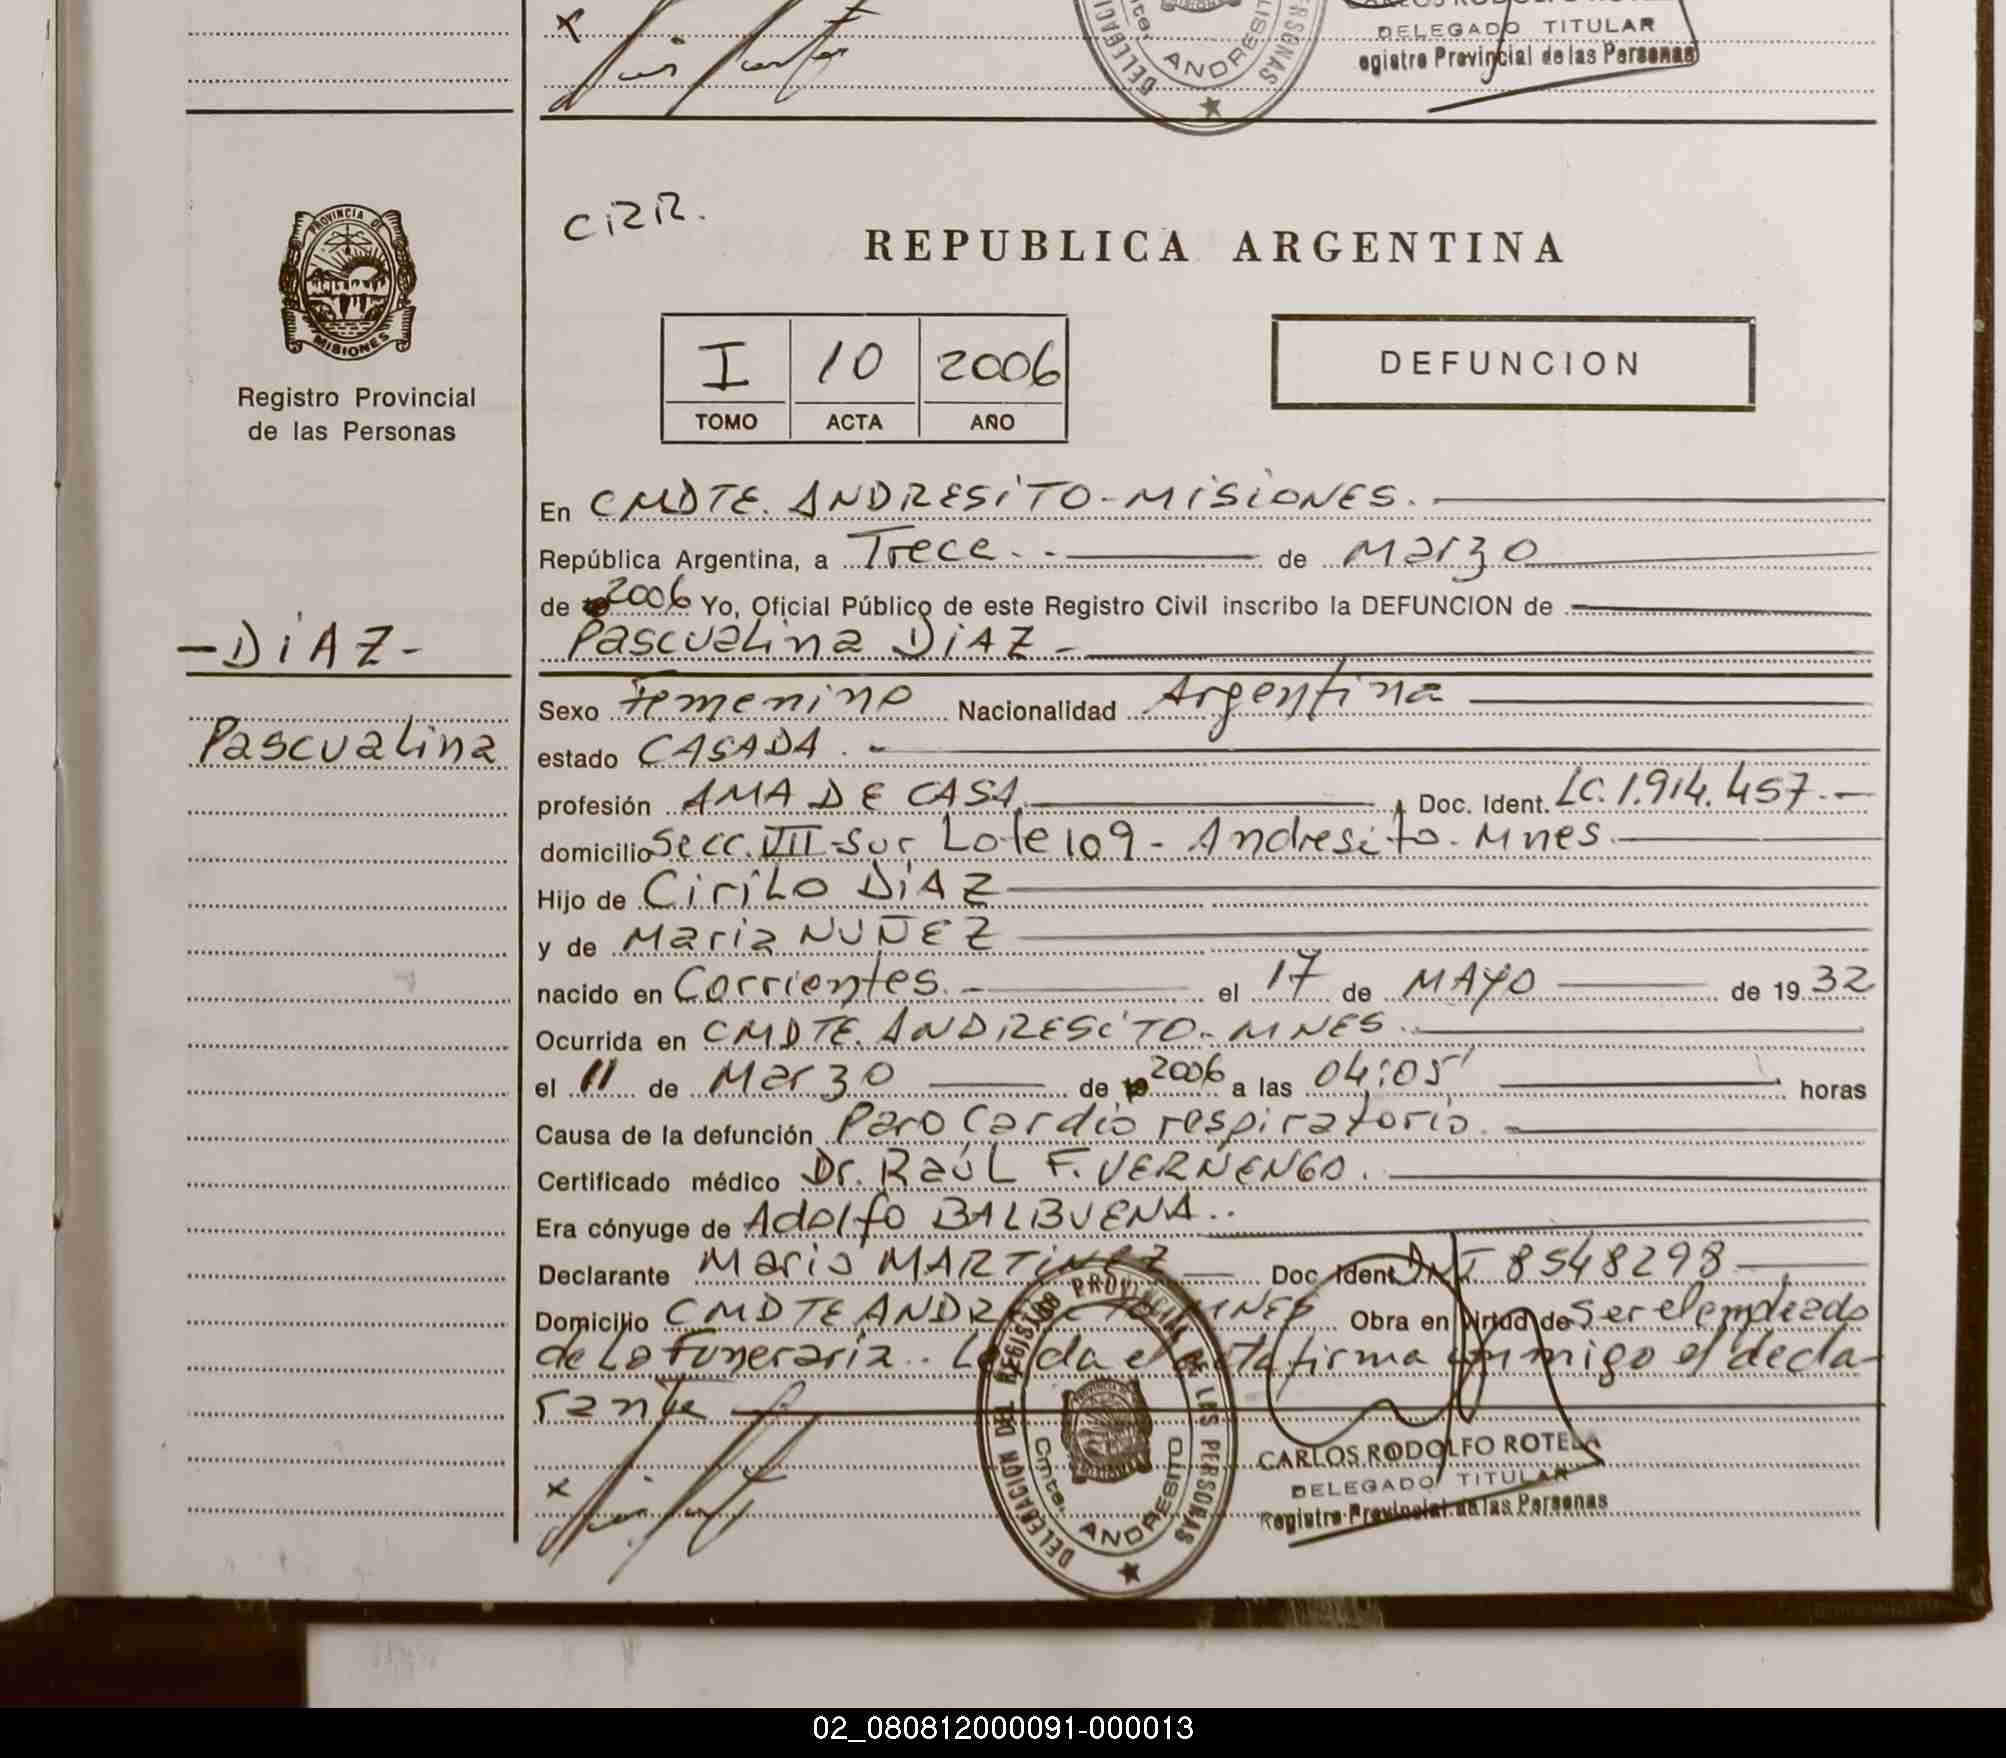 DELEGADO TITULAR
egistro Provincial de las Personas
ANDRESIT
CRR.
REPUBLICA ARGENTINA
PROVINCIA DE
MISIONES
Registro Provincial
de las Personas
I 10 2006
TOMO ACTA AÑO
DEFUNCION
En CMDTE. ANDRESITO - MISIONES.
República Argentina, a Trece de Marzo
de 2006 Yo, Oficial Público de este Registro Civil inscribo la DEFUNCION de
- DIAZ -
Pascualina DIAZ -
Pascualina
Sexo Femenino Nacionalidad Argentina
estado CASADA. -
profesión AMA DE CASA, Doc. Ident. LC. 1.914.457.-
domicilio Secc. VII - Sur Lote 109 - Andresito - Mnes.
Hijo de Cirilo DIAZ
y de Maria NUÑEZ
nacido en Corrientes. - el 17 de MAYO de 1932
Ocurrida en CMDTE. ANDRESITO - MNES.
el 11 de Marzo de 2006 a las 04:05' horas
Causa de la defunción Paro Cardio respiratorio. -
Certificado médico Dr. Raúl F. VERNENGO.
Era cónyuge de Adolfo BALBUENA..
Declarante Mario MARTINEZ Doc. Ident. DNI 8548298
Domicilio CMDTE ANDRESITO MNES Obra en Virtud de Ser el empleado
de La Funeraria.. Leída el acta firma conmigo el decla-
rante
x
DELEGACION DEL REGISTRO PROVINCIAL DE LAS PERSONAS
Cmte. ANDRESITO
CARLOS RODOLFO ROTELA
DELEGADO TITULAR
Registro Provincial de las Personas
02_080812000091-000013